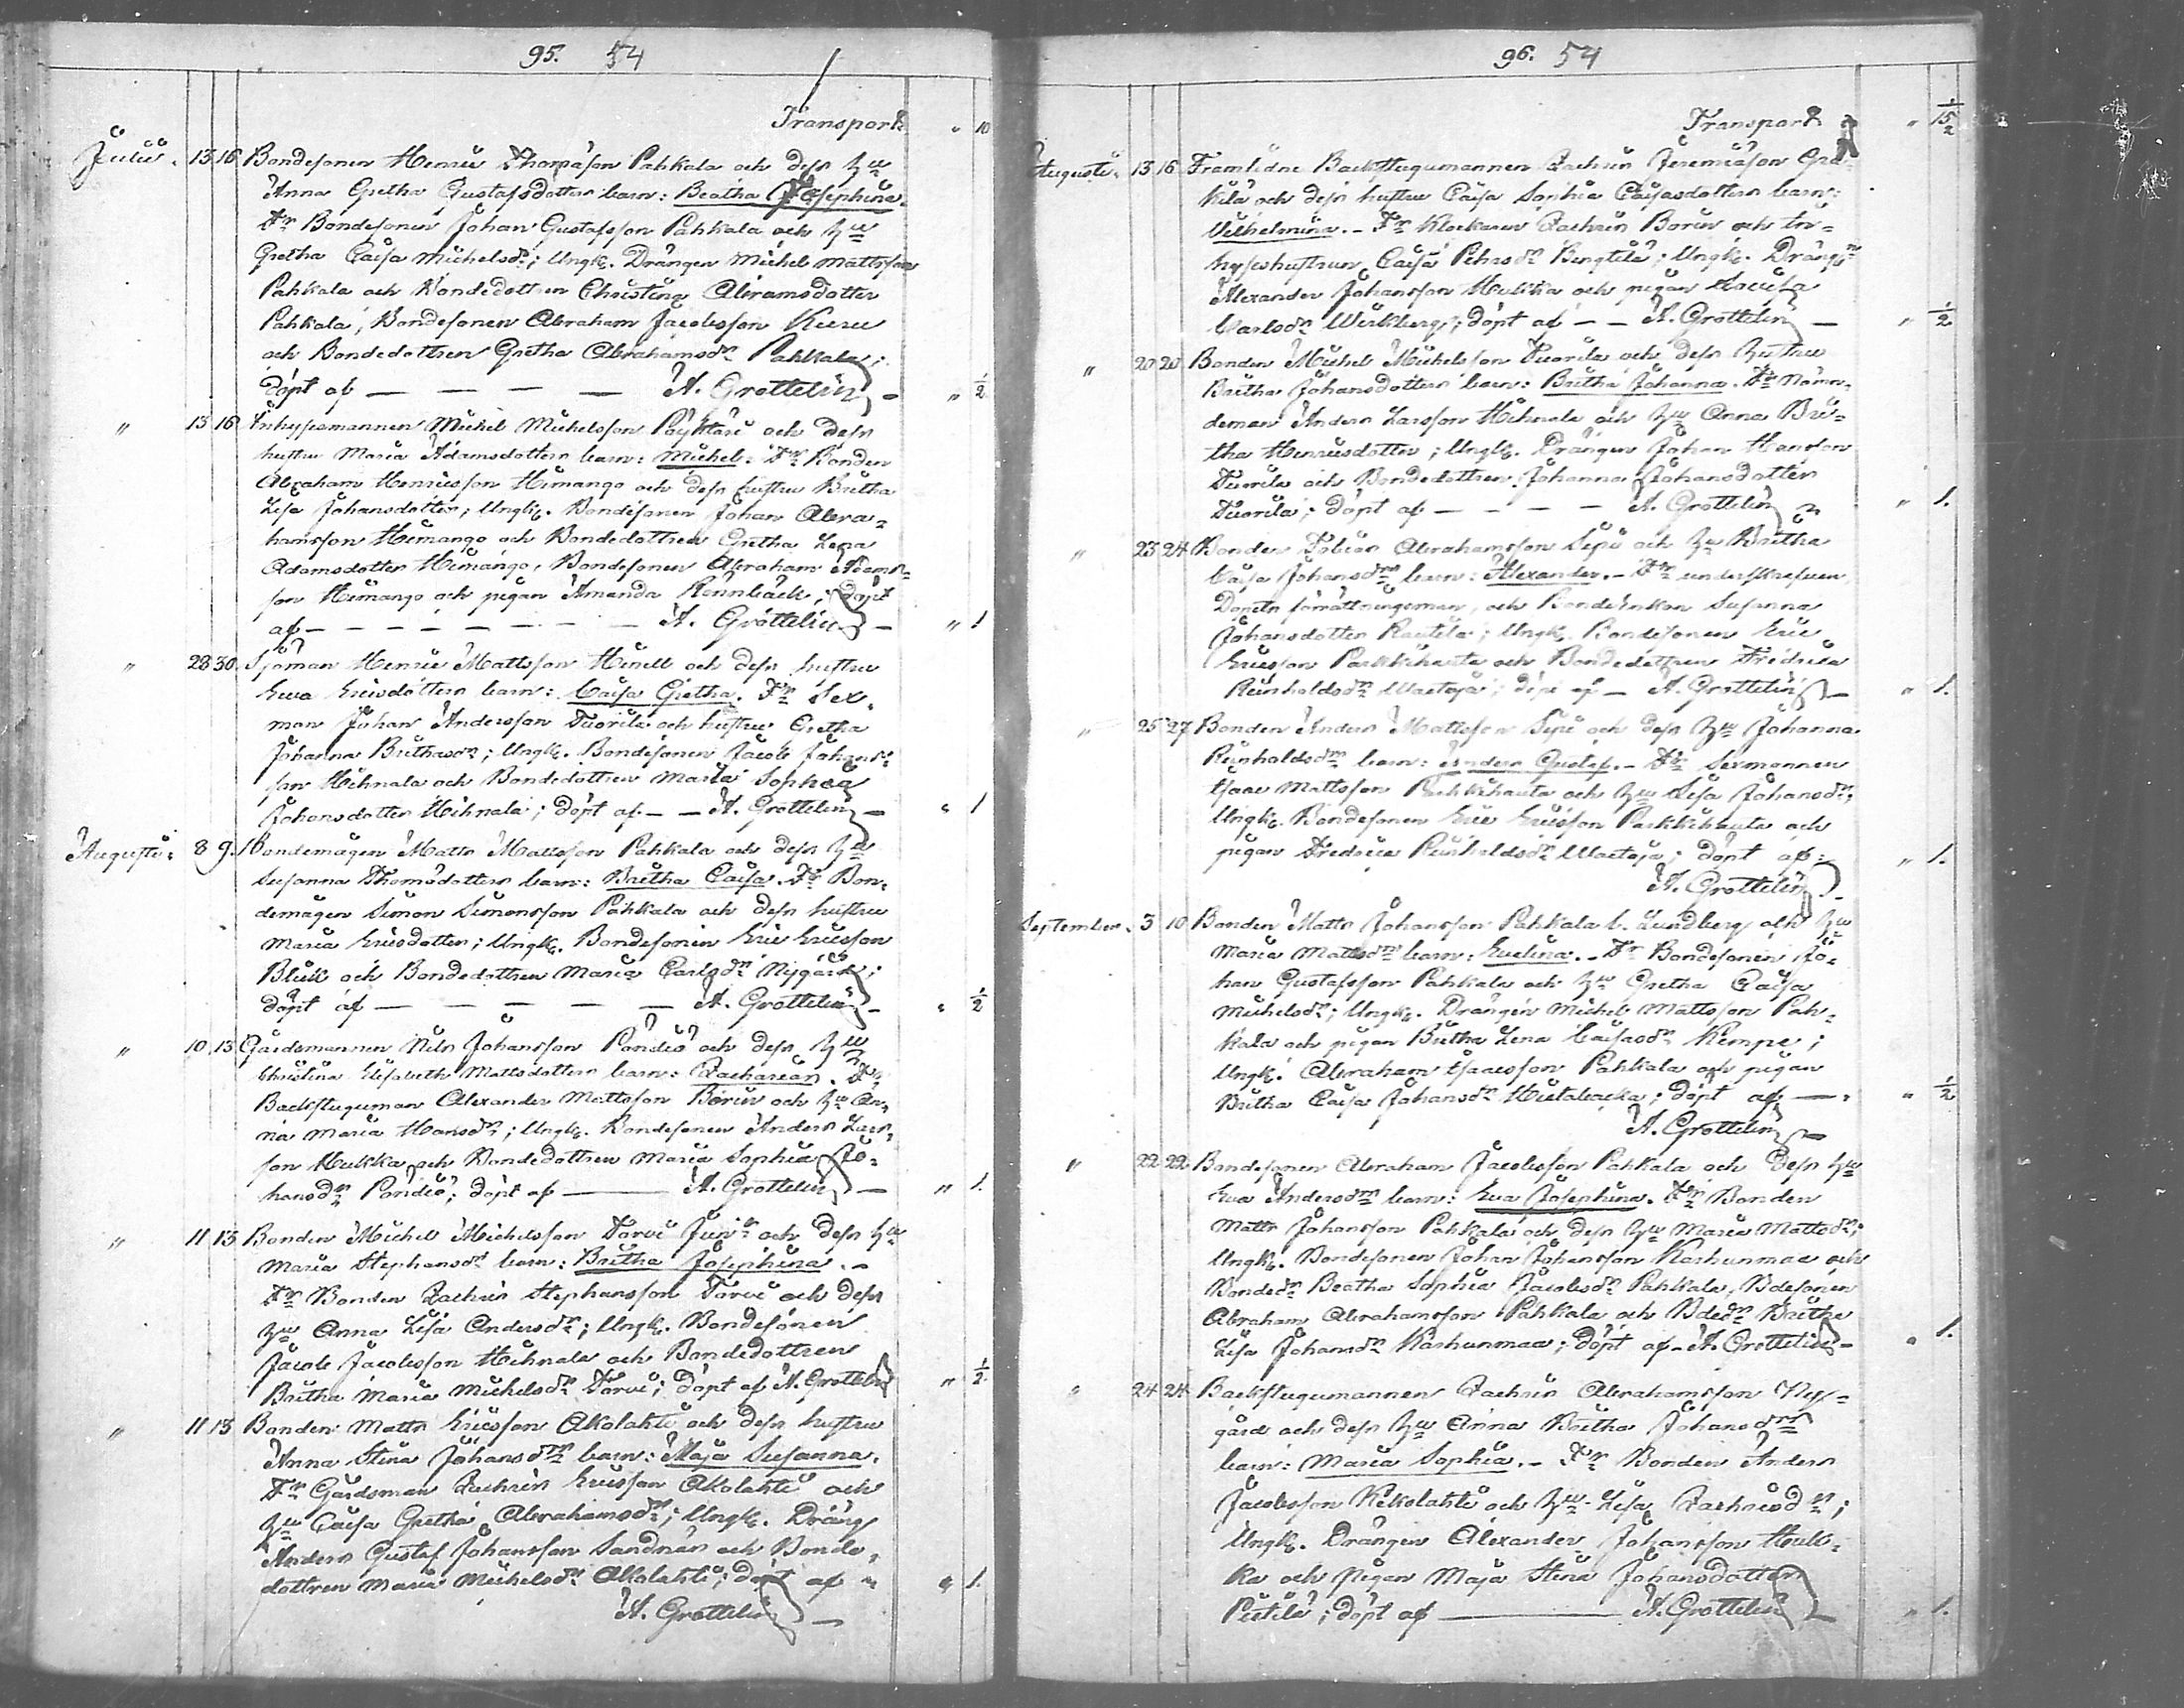 95. 54
Transport " 10
Julii. 13 16 Bondesonen Henric Thomasson Pahkala och dess hu
Anna Gretha Gustafsdotters barn: Beatha Josephina.
Fr Bondesonen Johan Gustafsson Pahkala och hu
Gretha Caisa Michelsdr; Ungk. Drängen Michel Mattsson
Pahkala och Bondedottren Christina Abramsdotter
Pahkala, Bondesonen Abraham Jacobsson Kuru
och Bondedottren Gretha Abrahamsdr Pahkala;
döpt af — — — — A. Gröttelin " 1/2
" 13 16 Inhysesmannen Michel Michelsson Pöyhtäri och dess
hustru Maria Adamsdotters barn: Michel. Fr Bonden
Abraham Henricsson Himango och dess hustru Britha
Lisa Johansdotter; Ungk. Bondesonen Johan Abra=
hamsson Himango och Bondedottren Gretha Lena
Adamsdotter Himango, Bondesonen Abraham Adams=
son Himango och pigan Amanda Rönnbäck; döpt
af — — — — — A. Gröttelin " 1
" 28 30. Sjöman Henric Mattsson Hinell och dess hustru
Ewa Ericsdotters barn: Caisa Gretha. Fr Sex=
man Johan Andersson Tuorila och hustru Gretha
Johanna Brithasdr; Ungk. Bondesonen Jacob Johans=
son Hihnala och Bondedottren Maria Sophia
Johansdotter Hihnala; döpt af — — A. Gröttelin " 1
Augusti: 8 9. Bondemågen Matts Mattsson Pahkala och dess hu
Susanna Thomasdotters barn: Britha Caisa. Fr Bon=
demågen Simon Simonsson Pahkala och dess hustru
Maria Ericsdotter; Ungk. Bondesonen Eric Ericsson
Blick och Bondedottren Maria Carlsdr Nygård;
döpt af — — — — — A. Gröttelin " 1/2
" 10 13 Gårdsmannen Nils Johansson Pöndiö och dess hu
Christina Elisabeth Mattsdotters barn: Zacharias. Fr
Backstuguman Alexander Mattsson Borin och hu An=
na Maria Hansdr; Ungk. Bondesonen Anders Lars=
son Hukka och Bondedottren Maria Sophia Jo=
hansdr Pöndiö; döpt af — A. Gröttelin " 1.
" 11 13 Bonden Michel Michelsson Torvi Junr och dess hu
Maria Stephansdr barn: Britha Josephina. -
Fr Bonden Zachris Stephansson Torvi och dess
hu Anna Lisa Andersdr; Ungk. Bondesonen
Jacob Jacobsson Hihnala och Bondedottren
Britha Maria Michelsdr Torvi; döpt af A. Gröttelin " 1/2
" 11 13 Bonden Matts Ericsson Akolahti och dess hustru
Anna Stina Johansdrs barn: Maja Susanna.
Fr Gårdsman Zachris Ericsson Akolahti och
hu Caisa Gretha Abrahamsdr; Ungk. Dräng
Anders Gustaf Johansson Sandnäs och Bonde=
dottren Maria Michelsdr Akolahti; döpt af " 1.
A. Gröttelin
96. 54
Transport " 15 1/2
Augusti. 13 16 Framlidne Backstugumannen Zachris Jeremiasson
kilä och dess hustru Caisa Sophia Caisasdotters barn:
Wilhelmina. - Fr Klockaren Zachris Borin och In=
hyseshustrun Caisa Pehrsdr Bengtilä; Ungk. Drängn
Alexander Johansson Hukka och pigan Lovisa
Carlsdr Wirkberg; döpt af — — A. Gröttelin — " 1/2
" 20 20 Bonden Michel Michelsson Tuorila och dess hustru
Britha Johansdotters barn: Britha Johanna. Fr Nämn=
deman Anders Larsson Hihnala och hu Anna Bri=
tha Henricsdotter; Ungk. Drängen Johan Hansson
Tuorila och Bondedottren Johanna Johansdotter
Tuorila; döpt af — — — — A. Gröttelin " 1.
" 23 24 Bonden Tobias Abrahamsson Sipi och hu Britha
Caisa Johansdrs barn: Alexander. - Fr underskrefven
Dopets förrättningsman, och Bondeenkan Susanna
Johansdotter Rautila; Ungk. Bondesonen Eric
Ericsson Parkkihauta och Bondedottren Fredrica
Reinholdsdr Waetaja; döpt af — A. Gröttelin — " 1.
" 25 27 Bonden Anders Mattsson Sipi och dess hu Johanna
Reinholdsdrs barn: Anders Gustaf. - Fr Sexmannen
Isaac Mattsson Parkkihauta och hu Lisa Johansdr;
Ungk. Bondesonen Eric Ericsson Parkkihauta och
pigan Fredrica Reinholdsdr Waetaja; döpt af: " 1.
A. Gröttelin
September. 3 10 Bonden Matts Johansson Pahkala l. Lundberg och hu
Maria Mattsdrs barn: Evelina. - Fr Bondesonen Jo=
han Gustafsson Pahkala och hu Gretha Caisa
Michelsdr; Ungk. Drängen Michel Mattsson Pah=
kala och pigan Britha Lena Caisasdr Kempe;
Ungk. Abraham Isaacsson Pahkala och pigan
Britha Caisa Johansdr Hietabacka; döpt af — " 1/2
A. Gröttelin
" 22 22 Bondesonen Abraham Jacobsson Pahkala och dess hu
Ewa Andersdrs barn: Ewa Josephina. Fr Bonden
Matts Johansson Pahkala och dess hu Maria Mattsdr;
Ungk. Bondesonen Johan Johansson Karhunmaa och
Bondedr Beatha Sophia Jacobsdr Pahkala, Bdesonen
Abraham Abrahamsson Pahkala och Bdedr Britha
Lisa Johansdr Karhunmaa; döpt af - A. Gröttelin - " 1.
" 24 24 Backstugumannen Zachris Abrahamsson Ny=
gård och dess hu Anna Britha Johansdrs
barn: Maria Sophia. - Fr Bonden Anders
Jacobsson Kikolahti och hu Lisa Zachrisdr;
Ungk. Drängen Alexander Johansson Huk=
ka och pigan Maja Stina Johansdotter
Pietilä; döpt af — A. Gröttelin " 1.